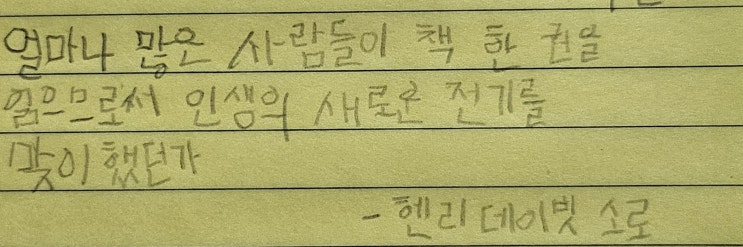 얼마나 많은 사람들이 책 한 권을
읽으므로써 인생의 새로운 전기를
맞이했던가
- 헨리 데이빗 소로